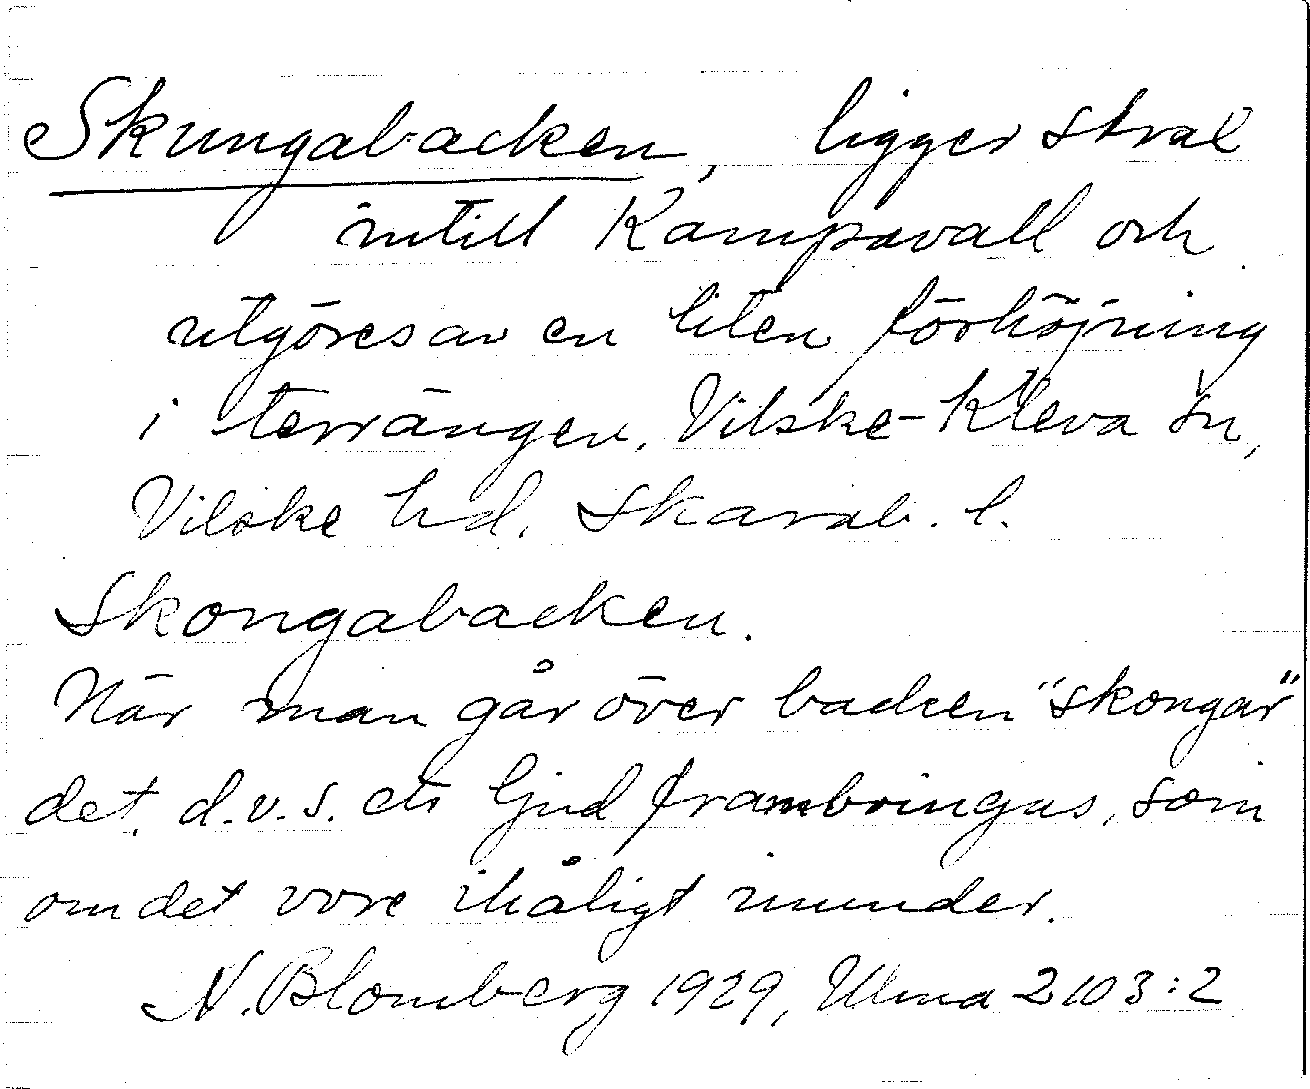 Skungabacken, ligger strax
intill Kampavall och
utgöres av en liten förhöjning
i terrängen. Vilske-Kleva sn,
Vilske hd. Skarab. l.
Skongabacken.
När man går över backen "skongar"
det, d.v.s. ett ljud frambringas, som
om det vore ihåligt inunder.
N. Blomberg 1929, Uma 2103:2